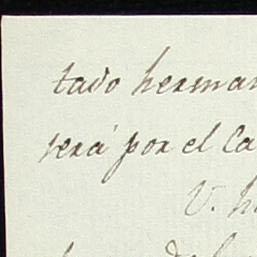 tado herman
será por el Ca
V. h